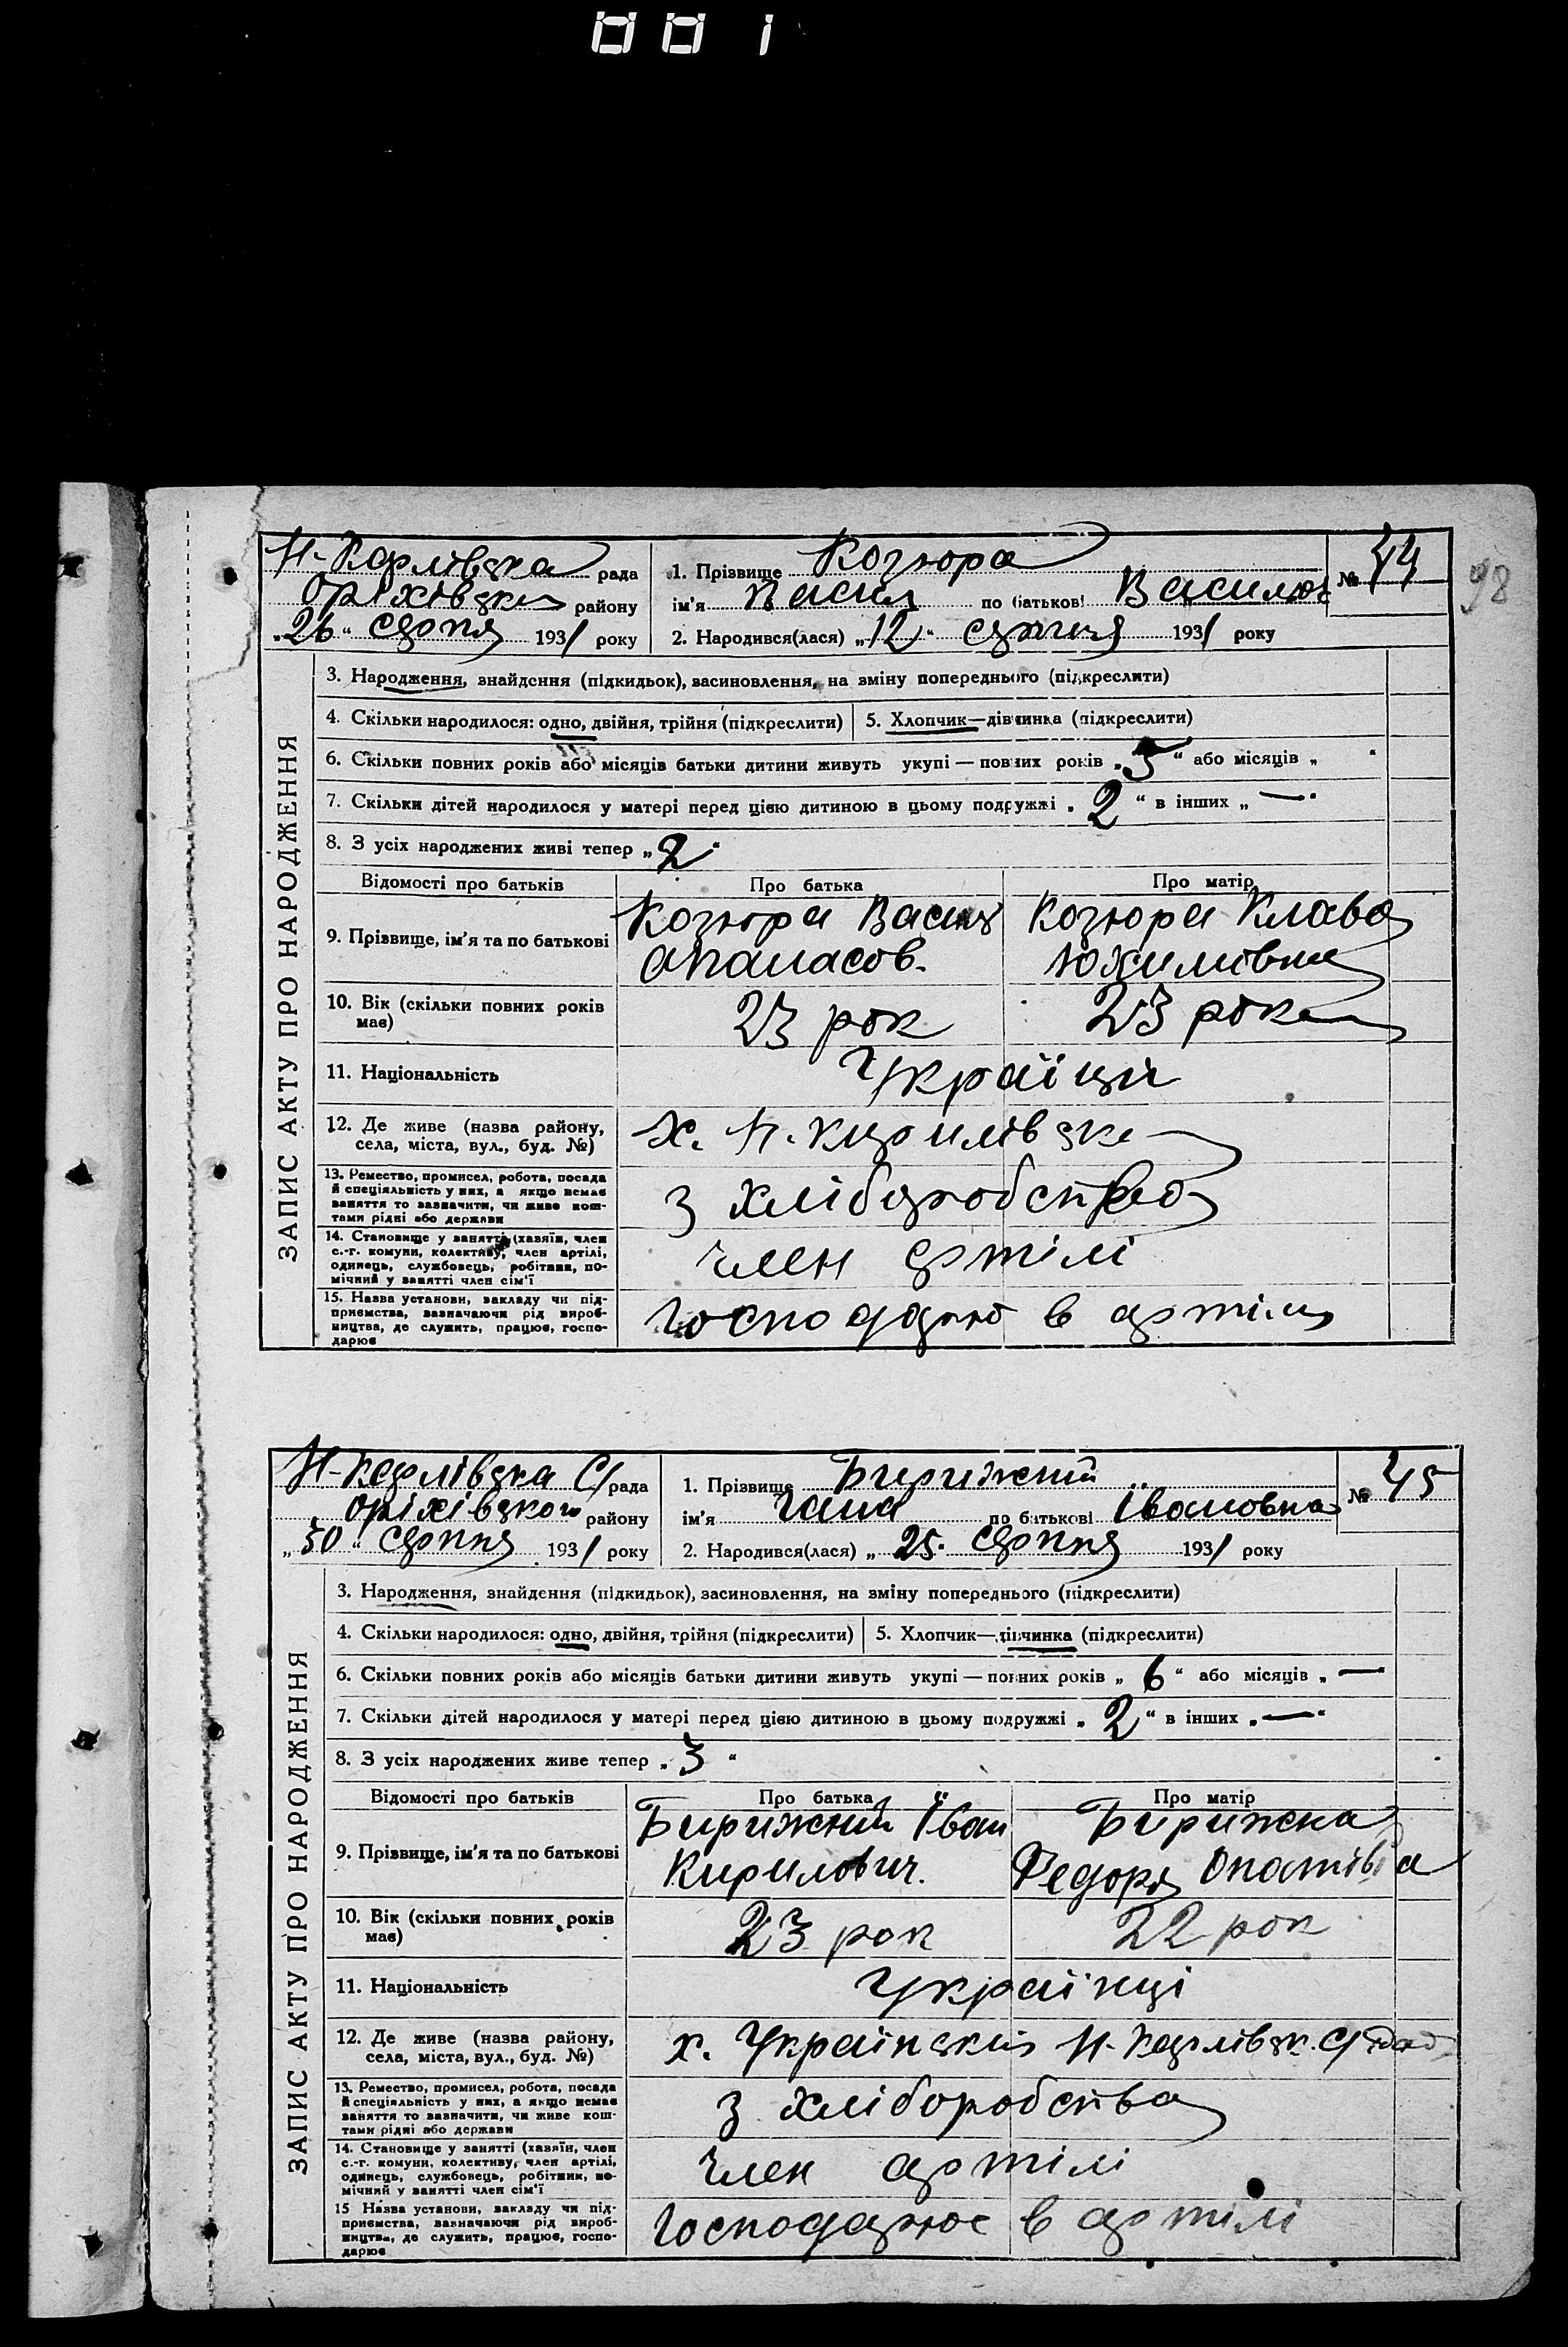 001
Н-Карлівска рада
1. Прізвище Козюра
№ 44
98
Оріхівски району
ім'я Васил по батькові Василює
„26" серпня 1931 року
2. Народився(лася) „12" серпня 1931 року
ЗАПИС АКТУ ПРО НАРОДЖЕННЯ
3. Народження, знайдення (підкидьок), васиновлення, на зміну попереднього (підкреслити)
4. Скільки народилося: одно, двійня, трійня (підкреслити)
5. Хлопчик—дівчинка (підкреслити)
6. Скільки повних років або місяців батьки дитини живуть укупі — повних років „5" або місяців „ "
7. Скільки дітей народилося у матері перед цією дитиною в цьому подружжі „2" в інших „—"
8. З усіх народжених живі тепер „2"
Відомості про батьків
Про батька
Про матір
9. Прізвище, ім'я та по батькові
Козюра Васил
Апанасов.
Козюра Клава
10. Вік (скільки повних років
має)
23 рок
23 рок
11. Національність
Українці
12. Де живе (назва району,
села, міста, вул., буд. №)
х. Н.
13. Ремество, промисел, робота, посада
й спеціяльність у них, а якщо немає
заняття то зазначити, чи живе кош-
тами рідні або держави
з хліборобства
14. Становище у занятті (хазяїн, член
с.-г. комуни, колективу, член артілі,
одинець, службовець, робітник, по-
мічний у занятті член сім'ї
член артілі
15. Назва установи, закладу чи під-
приємства, зазначаючи рід вироб-
ництва, де служить, працює, госпо-
дарює
господарює в артіли
Н-Карлівска С/рада
1. Прізвище Бирижний
№ 45
Оріхівского району
ім'я Гана по батькові Івановна
„30" серпня 1931 року
2. Народився(лася) „25. серпня 1931 року
ЗАПИС АКТУ ПРО НАРОДЖЕННЯ
3. Народження, знайдення (підкидьок), засиновлення, на зміну попереднього (підкреслити)
4. Скільки народилося: одно, двійня, трійня (підкреслити)
5. Хлопчик—дівчинка (підкреслити)
6. Скільки повних років або місяців батьки дитини живуть укупі — повних років „6" або місяців „—
7. Скільки дітей народилося у матері перед цією дитиною в цьому подружжі „2" в інших „—"
8. З усіх народжених живе тепер „3"
Відомості про батьків
Про батька
Про матір
9. Прізвище, ім'я та по батькові
Бирижний Іван
Кирилович.
Бирижна
Федора
10. Вік (скільки повних років
має)
23 рок
22 рок
11. Національність
Українці
12. Де живе (назва району,
села, міста, вул., буд. №)
х. Українский Н-Карлівск. С/рад
13. Ремество, промисел, робота, посада
й спеціяльність у них, а якщо немає
заняття то зазначити, чи живе кош-
тами рідні або держави
з хліборобства
14. Становище у занятті (хазяїн, член
с.-г. комуни, колективу, член артілі,
одинець, службовець, робітник, по-
мічний у занятті член сім'ї
член артілі
15 Назва установи, закладу чи під-
приємства, зазначаючи рід вироб-
ництва, де служить, працює, госпо-
дарює
господарює в артілі